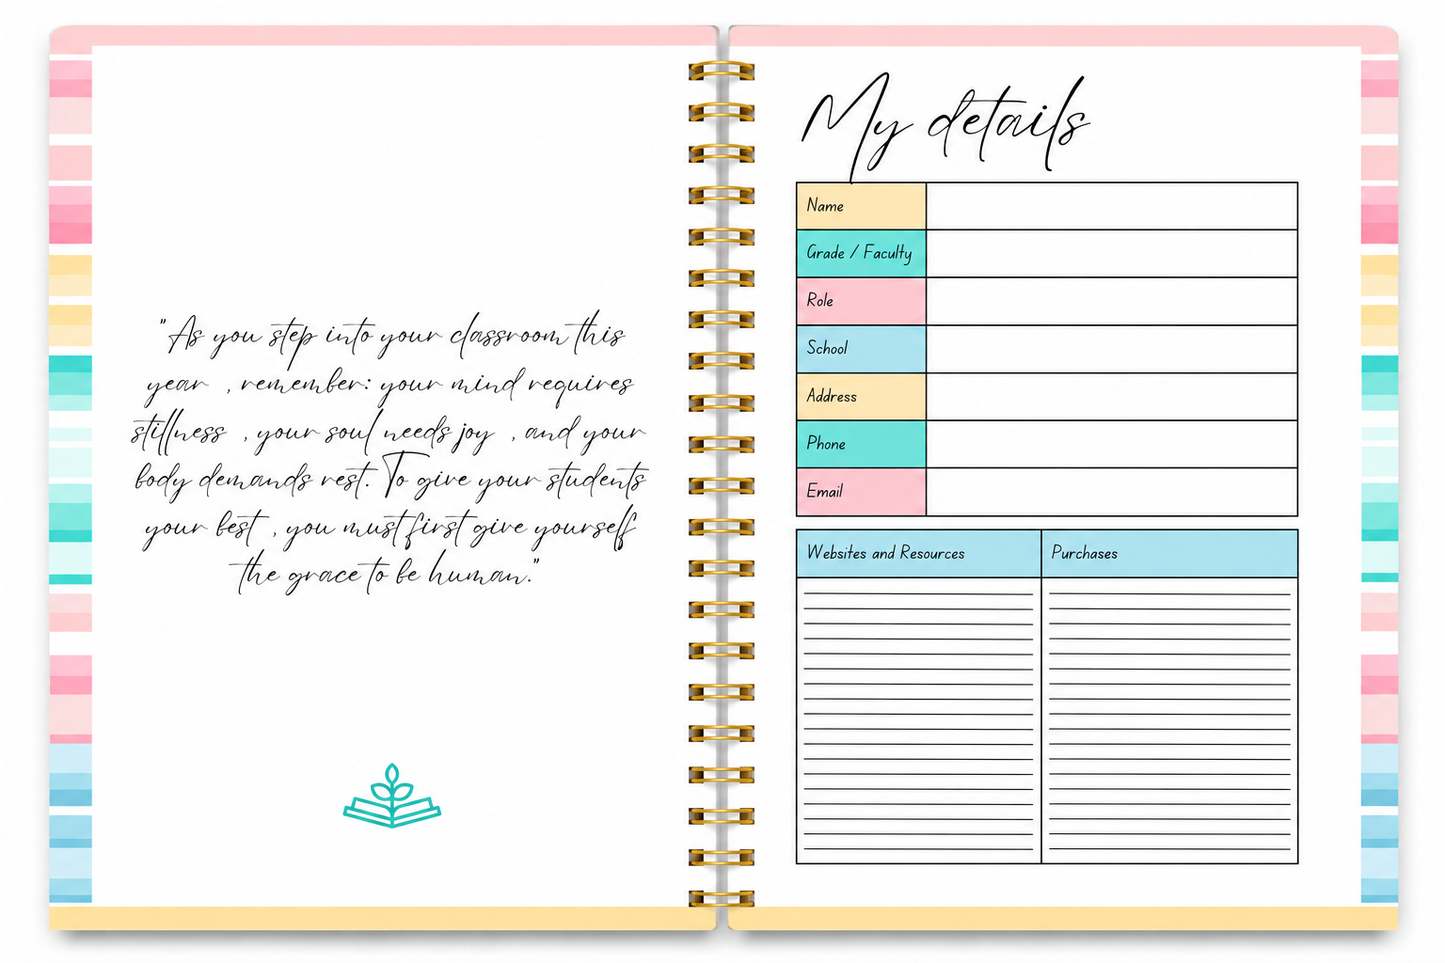 "As you step into your classroom this
year , remember: your mind requires
stillness , your soul needs joy , and your
body demands rest. To give your students
your best , you must first give yourself
the grace to be human."
My details
Name
Grade / Faculty
Role
School
Address
Phone
Email
Websites and Resources
Purchases